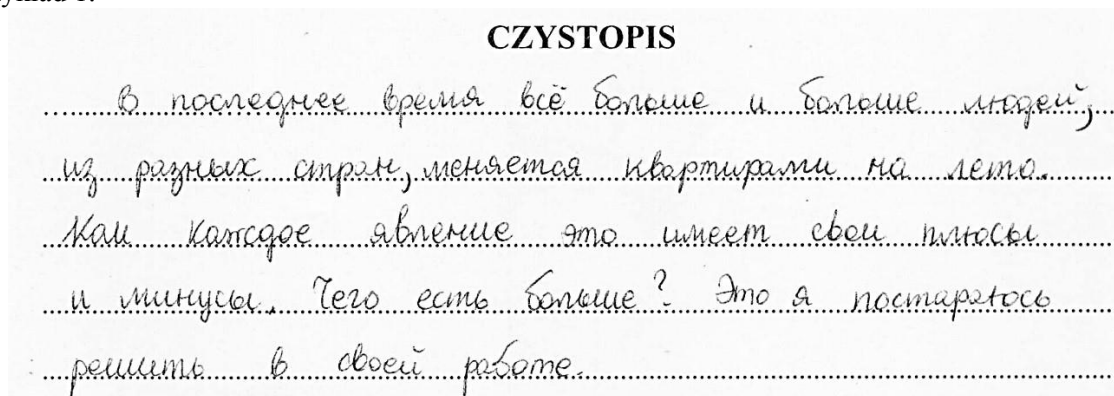 CZYSTOPIS
В последнее время всё больше и больше людей,
из разных стран, меняется квартирами на лето.
Как каждое явление это имеет свои плюсы
и минусы. Чего есть больше? Это я постараюсь
решить в своей работе.